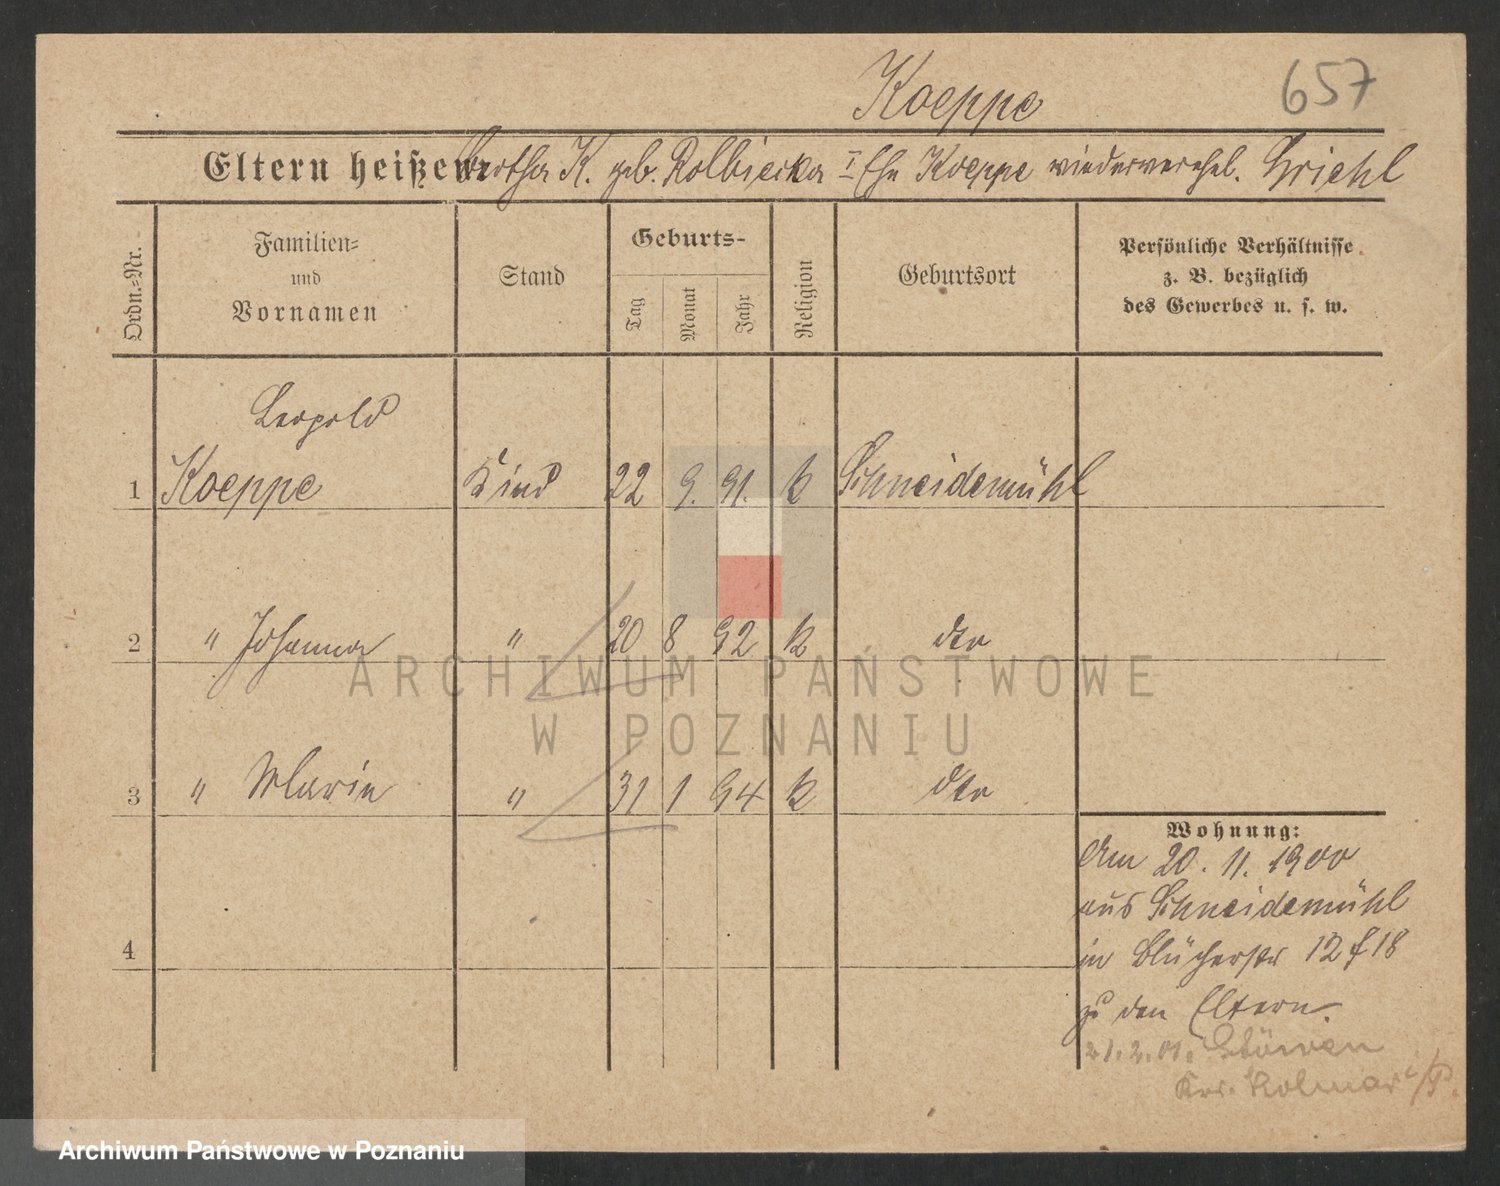 Koeppe
657
Eltern heißen: Bertha K. geb. Rolbiecka I Ehe Koeppe wiederverehel. Griehl
Ordn.=Nr.
Familien=
und
Vornamen
Stand
Geburts-
Tag
Monat
Jahr
Religion
Geburtsort
Persönliche Verhältnisse
z. B. bezüglich
des Gewerbes u. s. w.
Leopold
1 Koeppe Kind 22 9. 91. k Schneidemühl
2 " Johanna " 20 8 92 k dto
ARCHIWUM PAŃSTWOWE
W POZNANIU
3 " Marie " 31 1 94 k dto
4
Wohnung:
Am 20. 11. 1900
aus Schneidemühl
in Blücherstr 12 f 18
zu den Eltern.
21.2.01. Stöwen
Krs. Kolmar i/P.
Archiwum Państwowe w Poznaniu